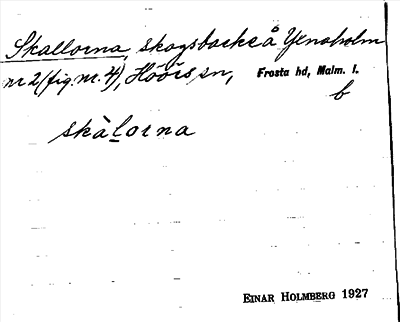 Skallorna, skogsbacke å Yenaholm
nr 2 (fig. nr. 4), Höörs sn, Frosta hd, Malm. l.
b
skàlorna
EINAR HOLMBERG 1927